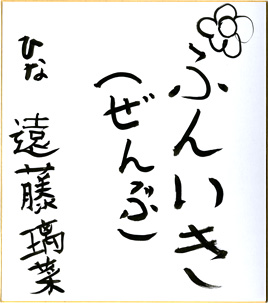 ふんいき
（ぜんぶ）
ひな
遠藤璃菜